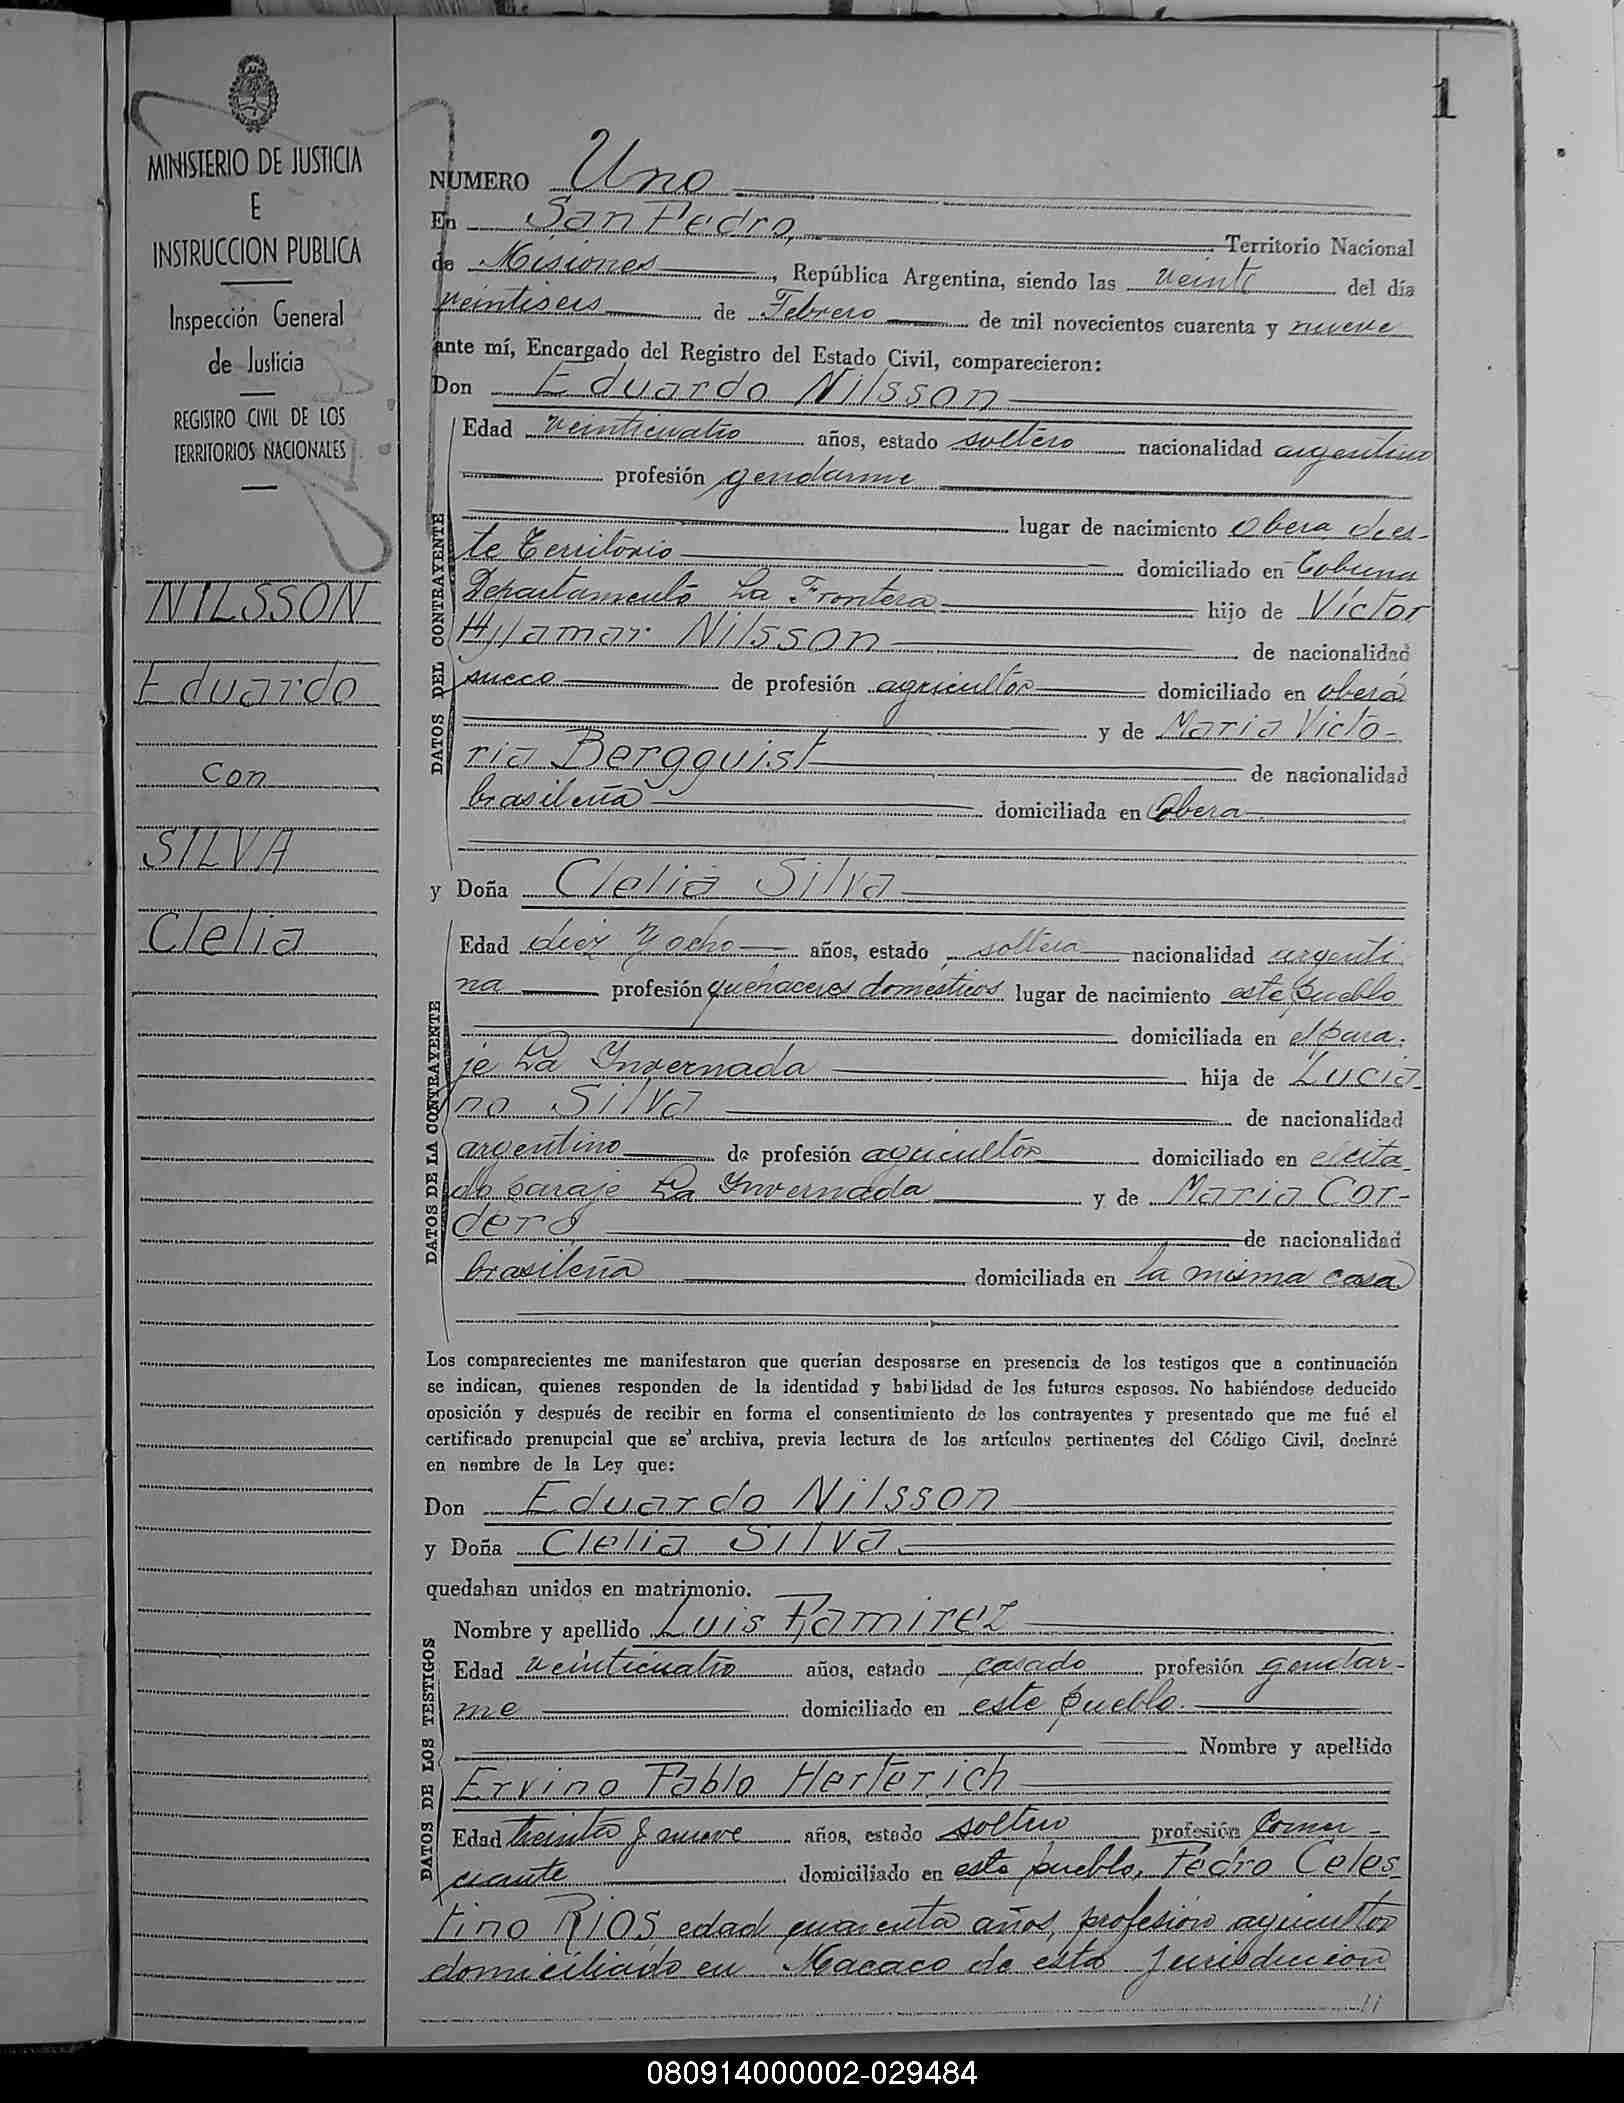 1
MINISTERIO DE JUSTICIA
E
INSTRUCCION PUBLICA
Inspección General
de Justicia
REGISTRO CIVIL DE LOS
TERRITORIOS NACIONALES
NILSSON
Eduardo
con
SILVA
Clelia
NUMERO Uno
En San Pedro, Territorio Nacional
de Misiones, República Argentina, siendo las veinte del día
veintiseis de Febrero de mil novecientos cuarenta y nueve
ante mí, Encargado del Registro del Estado Civil, comparecieron:
Don Eduardo Nilsson
DATOS DEL CONTRAYENTE
Edad veinticuatro años, estado soltero nacionalidad argentino
profesión gendarme
lugar de nacimiento Obera, de es-
te Territorio domiciliado en Tobuna
Departamento La Frontera hijo de Víctor
Hjlamar Nilsson de nacionalidad
sueco de profesión agricultor domiciliado en oberá
y de Maria Victo-
ria Bergquist de nacionalidad
brasileña domiciliada en Obera
y Doña Clelia Silva
DATOS DE LA CONTRAYENTE
Edad diez y ocho años, estado soltera nacionalidad argenti
na profesión quehaceres domesticos lugar de nacimiento este pueblo
domiciliada en el para-
je La Invernada hija de Lucia-
no Silva de nacionalidad
argentino de profesión agricultor domiciliado en el cita-
do paraje La Invernada y de Maria Cor-
dero, de nacionalidad
brasileña domiciliada en la misma casa
Los comparecientes me manifestaron que querían desposarse en presencia de los testigos que a continuación
se indican, quienes responden de la identidad y habilidad de los futuros esposos. No habiéndose deducido
oposición y después de recibir en forma el consentimiento de los contrayentes y presentado que me fué el
certificado prenupcial que se archiva, previa lectura de los artículos pertinentes del Código Civil, declaré
en nombre de la Ley que:
Don Eduardo Nilsson
y Doña Clelia Silva
quedaban unidos en matrimonio.
DATOS DE LOS TESTIGOS
Nombre y apellido Luis Ramirez
Edad veinticuatro años, estado casado profesión gendar-
me domiciliado en este pueblo.
Nombre y apellido
Ervino Pablo Herterich
Edad treinta y nueve años, estado soltero profesión Comer-
ciante domiciliado en este pueblo, Pedro Celes-
tino Rios, edad cuarenta años, profesión agricultor
domiciliado en Macaco de esta jurisdiccion
080914000002-029484